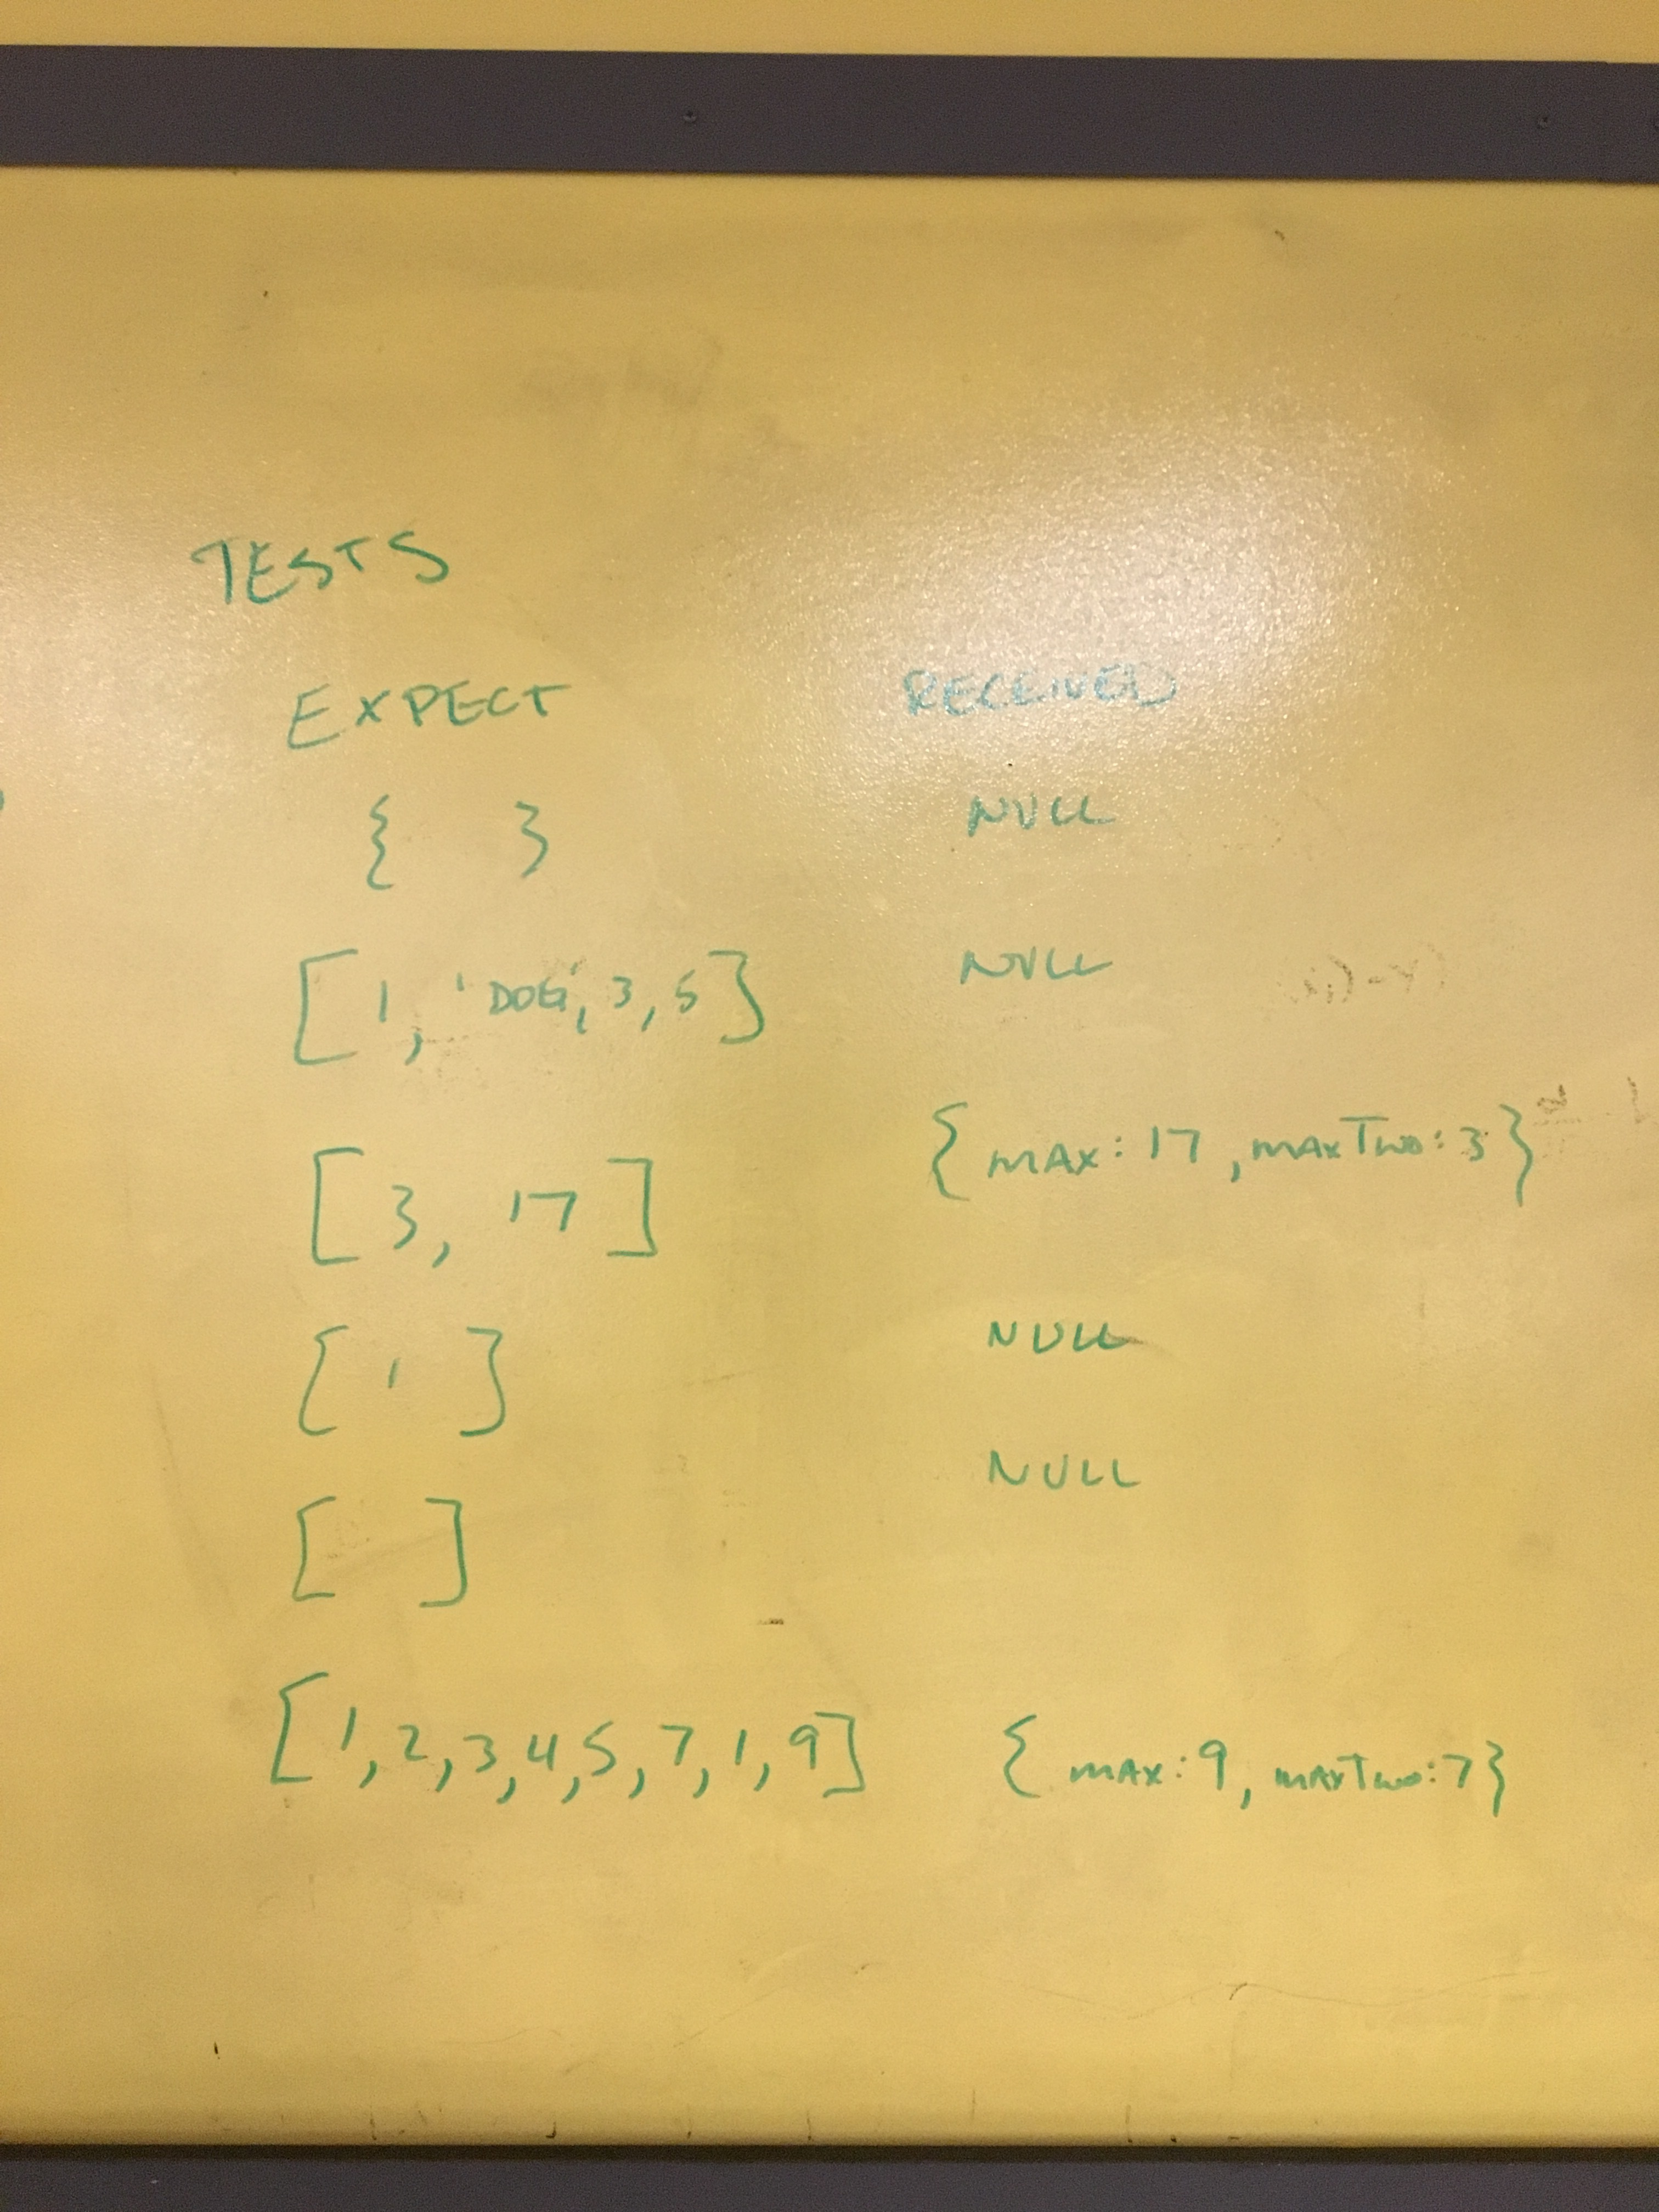 TESTS
EXPECT RECEIVED
{ } NULL
[1, 'DOG', 3, 5] NULL
[3, 17] {max: 17, maxTwo: 3}
[1] NULL
[ ] NULL
[1,2,3,4,5,7,1,9] {max: 9, maxTwo: 7}